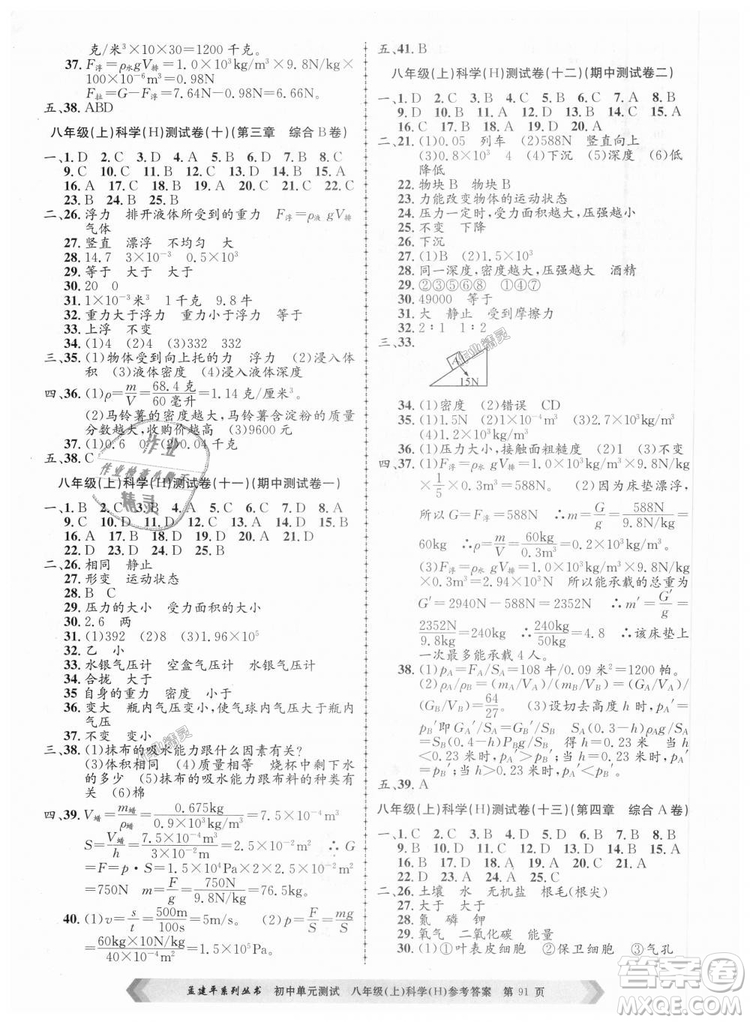 克/米³×10×30=1200 千克。
37. F浮=ρ水gV排=1.0×10³kg/m³×9.8N/kg
×7.8×10⁻⁴m³=7.64N
F拉=G−F浮=7.64N−0.98N=0.98N
五、38. ABD
八年级(上)科学(H)测试卷(十)(第三章 综合B卷)
一、1. D 2. C 3. D 4. D 5. D 6. D 7. C 8. C
9. C 10. C 11. D 12. D 13. D 14. A 15. C
16. A 17. C 18. C 19. D 20. A 21. C
22. B 23. B 24. A 25. A
二、26. 浮力 排开液体所受到的重力 F浮=ρ液gV排
气体
27. 竖直 漂浮 不均匀 大
28. 14.7 3×10⁻³ 0.5×10³
29. 等于 大于 大于
30. 20 0
31. 1×10³千克 9.8牛
32. 重力大于浮力 重力等于浮力
33. 上浮 不变
34. (1)4 (2)4 (3)332 332
三、35. (1)物体受到向上托的力 浮力 (2)浸入体
积 (3)液体密度 (4)浸入液体体积
四、36. (1)ρ=m/V=68.4克/60毫升=1.14克/厘米³
(2)马铃薯的密度越大,马铃薯含淀粉的质量
分数越大,收购价格越高 (3)9600
37. (1)0.6 0 (2)0.4
五、38. C
八年级(上)科学(H)测试卷(十一)(期中测试卷一)
一、1. B 2. C 3. B 4. D 5. D 6. A 7. D 8. A
9. C 10. D 11. C 12. B 13. C 14. C 15. D
16. A 17. C 18. D 19. C 20. C 21. D
22. D 23. D 24. C 25. B
二、26. 相同 静止
27. 形变 运动状态
28. B C
29. 压力的大小 受力面积的大小
30. 2.6 两
31. (1)392 (2)8 (3)1.96×10⁵
32. 乙 小
33. 水银气压计 空盒气压计 水银气压计
34. 合拢 大于
35 自身的重力 重力 密度
36. 变大 瓶内气压变小,使气球内气压大于瓶内
37. 不变 变小
三、38. (1)抹布的吸水能力跟什么因素有关?
(2)种类 (4)质量相等 烧杯中剩余水的多
少 (5)不同种类的抹布吸水能力跟布料的种类有
关 (6)棉
四、39. V蜡=m蜡/ρ蜡=0.675kg/0.9×10³kg/m³=7.5×10⁻⁴m³
S=V蜡/h=7.5×10⁻⁴m³/3×10⁻²m=2.5×10⁻²m² ∵G
=F=p·S=3×10⁴Pa×2.5×10⁻²m²=
750N ∴m=F/g=750N/9.8N/kg=76.5kg。
40. (1)v=s/t=500m/100s=5m/s。 (2)p=F/S=mg/S
=60kg×10N/kg/400×10⁻⁴m²=1.5×10⁴Pa。
五、41. B
八年级(上)科学(H)测试卷(十二)(期中测试卷二)
一、1. D 2. C 3. C 4. C 5. D 6. A 7. A 8. D
9. D 10. C 11. D 12. B 13. D 14. A 15. B
16. A 17. C 18. C 19. C 20. D
二、21. (1)0.05 列车 (2)588N 竖直向上
(3)0.2×10³ (4)下沉 (5)深度 (6)低
降低
22. 物块B 物块B
23. 力能改变物体的运动状态
24. 压力一定时,受力面积越大,压强越小
25. 不变 下降
26. 下沉
27. (1)B (2)1.5×10³
28. 同一深度,密度越大,压强越大 酒精
29. ②③⑤⑥⑧ ①④⑦
30. 49000 等于
31. 大 静止 受到摩擦力
32. 2∶1 1∶2
三、33.
15N
34. (1)密度 (2)错误 CD
35. (1)1.5N (2)1×10⁻⁴m³ (3)2.7×10³
kg/m³ (4)1.2×10³kg/m³
36. (1)压力大小,接触面粗糙度 (2)1 (3)不变
四、37. (1)F浮=ρ水gV排=1×10³kg/m³×9.8N/kg
×1/5×0.3m³=588N (2)因为此时床垫漂浮,
所以G=F浮=588N ∴m=G/g=588N/9.8N/kg=
60kg ∴ρ=m/V=60kg/0.3m³=0.2×10³kg/m³
(3)当床垫完全浸没时,F浮′=1×10³kg/m³×
9.8N/kg×0.3m³=2940N 所以能承载的总重力
G′=2940N−588N=2352N ∴m′=G′/g=
2352N/9.8N/kg=240kg ∴240kg/50kg=4.8 ∴该床垫
上最多能承载4人。
38. (1)pA=FA/SA=108牛/0.09米²=1200帕。
(2)ρA/ρB=(mA/VA)/(mB/VB)=(GA/VA)/
(GB/VB)=64/27。 (3)设切去高度为h时,
pA′=pB′即FA′/SA=FB′/SB,GA(0.3−h)/SA
=GB(0.4−h)/SB 解得h=0.23米 当h<
0.23米时,pA′>pB′;当h=0.23米时,pA′=
pB′;当0.3米>h>0.23米时,pA′<pB′。
五、39. A
八年级(上)科学(H)测试卷(十三)(第四章 综合A卷)
一、1. D 2. C 3. B 4. B 5. D 6. B 7. C 8. B
9. B 10. D 11. D 12. A 13. B 14. D 15. C
16. C 17. C 18. C 19. B 20. C 21. C
22. D 23. A 24. A 25. C
二、26. 土壤 水 无机盐 根毛(根尖)
27. 大于 大于
28. 氮 磷 钾
29. 氧气 二氧化碳 能量
30. (1)①叶表皮细胞 ②保卫细胞 ③气孔
孟建平系列丛书 初中单元测试 八年级(上)科学(H)参考答案 第 91 页